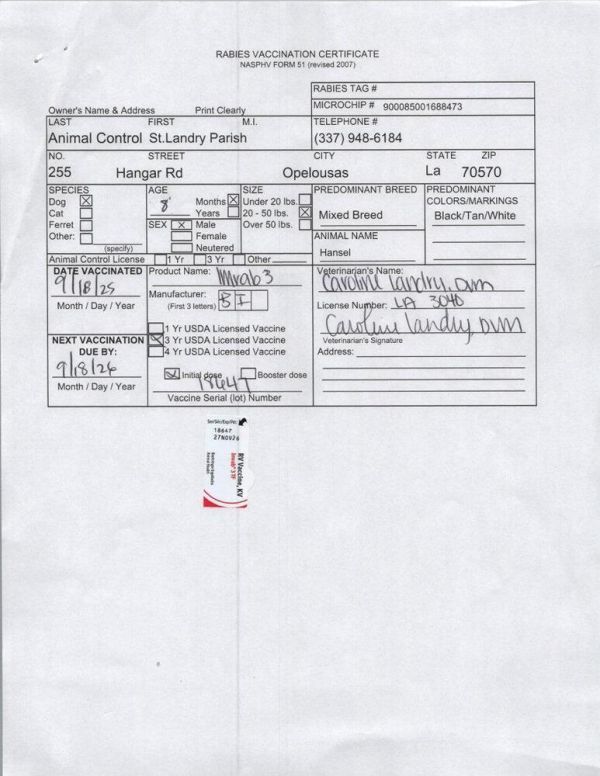 RABIES VACCINATION CERTIFICATE
NASPHV FORM 51 (revised 2007)
RABIES TAG #
Owner's Name & Address Print Clearly
MICROCHIP # 900085001688473
LAST FIRST M.I.
TELEPHONE #
Animal Control St.Landry Parish
(337) 948-6184
NO. STREET CITY STATE ZIP
255 Hangar Rd Opelousas La 70570
SPECIES
Dog X
Cat
Ferret
Other:
(specify)
AGE
8 Months X
Years
SEX X Male
Female
Neutered
SIZE
Under 20 lbs.
20 - 50 lbs. X
Over 50 lbs.
PREDOMINANT BREED
Mixed Breed
ANIMAL NAME
Hansel
PREDOMINANT
COLORS/MARKINGS
Black/Tan/White
Animal Control License 1 Yr 3 Yr Other
DATE VACCINATED
9/18/25
Month / Day / Year
NEXT VACCINATION
DUE BY:
9/18/26
Month / Day / Year
Product Name: Imrab 3
Manufacturer: B I
(First 3 letters)
1 Yr USDA Licensed Vaccine
3 Yr USDA Licensed Vaccine
4 Yr USDA Licensed Vaccine
Initial dose Booster dose
18647
Vaccine Serial (lot) Number
Veterinarian's Name:
Caroline Landry, DVM
License Number: LA 3040
Caroline Landry, DVM
Veterinarian's Signature
Address:
Ser/Sér/Exp/Pér:
18647
27NOV26
RV Vaccine, KV
Imrab® 3 TF